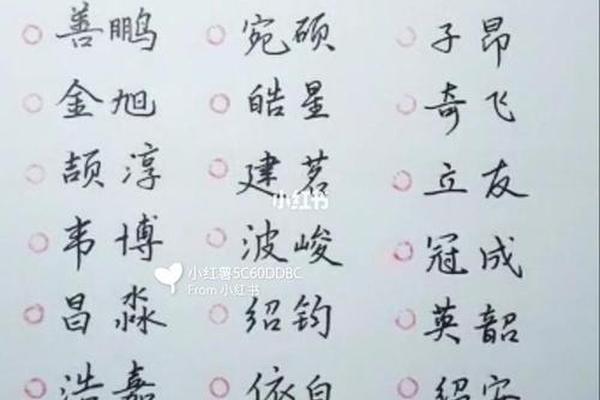 善鹏 宛硕 子昂
金旭 皓星 奇飞
颉淳 建茗 立友
小红书
韦博 波峻 冠成
小红薯5C60DDBC
From 小红书
昌淼 绍钧 英韶
浩嘉 依白 绍安